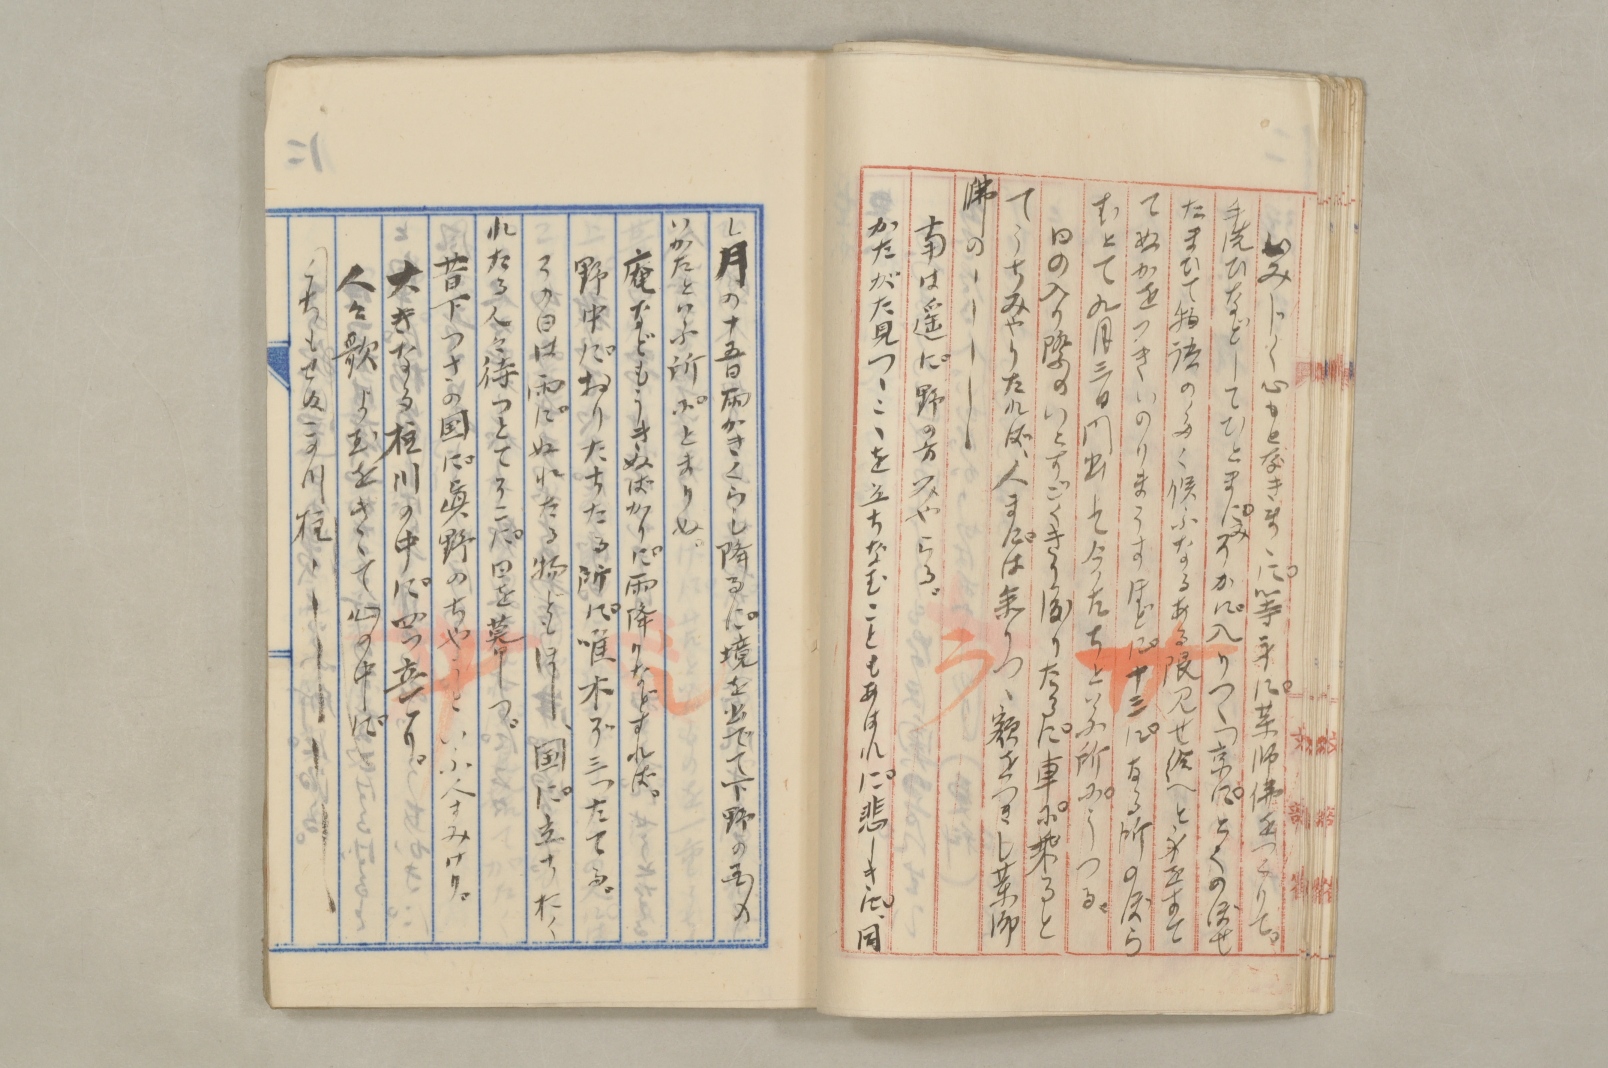 いみじく心もとなきまゝに、等身に薬師佛をつくりて、
手洗ひなどしてひとまにみそかに入りつゝ「京にとくのぼせ
たまひて物語の多く候ふなるある限見せ給へ」と身をすて
てぬかをつきいのりまうすほどに、十三になる所のぼら
むとて九月三日門出して今たちといふ所にうつる。
日の入り際のいとすごくきり渡りたるに、車に乗ると
てうちみやりたれば、人まには参りつゝ額をつきし薬師
佛の
南は遥に野の方みやらる。
かたがた見つゝこゝを立ちなむこともあはれに悲しきに、同
し月の十五日雨かきくらし降るに、境を出でて下野の国の
いかたといふ所にとまりぬ。
庵などもうきぬばかりに雨降りなどすれば。
野中に、おりたちたる所に、唯木ぞ三つたてる。
その日は雨にぬれたる物どもほし、国に立ちおく
れたる人々待つとてそこに日を暮しつ。
昔下つさの国に眞野のちやうといふ人すみけり。
大きなる柱川の中に四つ立てり。
人々歌よむをきゝて心の中に、
くちもせぬこの川柱